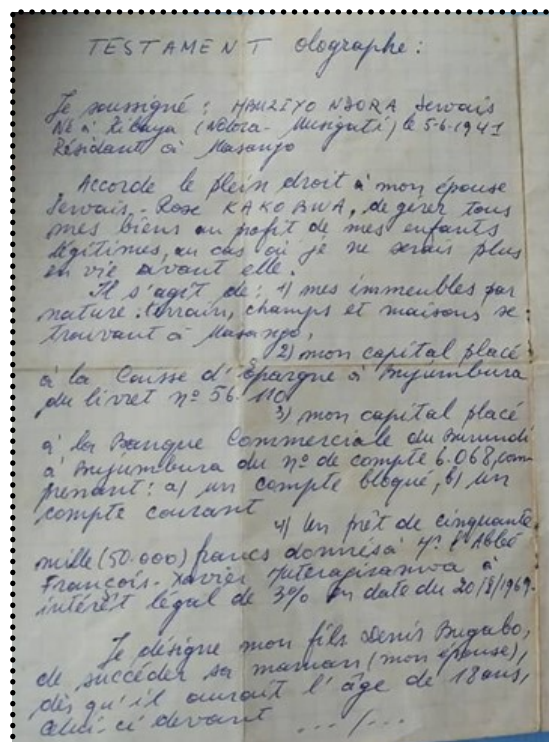 TESTAMENT olographe :
Je soussigné : NDORA Servais
Né à Kibaya (Ndora - Musigati) le 5-6-1941
Résidant à Masango
Accorde le plein droit à mon épouse
Servais - Rose KAKOBWA, de gérer tous
mes biens au profit de mes enfants
légitimes, au cas où je ne serais plus
en vie avant elle.
Il s'agit de : 1) mes immeubles par
nature : terrain, champs et maisons se
trouvant à Masango,
2) mon capital placé
à la Caisse d'Epargne à Bujumbura
du livret n° 56.110
3) mon capital placé
à la Banque Commerciale du Burundi
à Bujumbura du n° de compte 6.068, com
prenant : a) un compte bloqué, b) un
compte courant
4) Un prêt de cinquante
mille (50.000) francs donnés à l'Abbé
François - Xavier à
intérêt légal de 3% en date du 20/8/1969.
Je désigne mon fils Denis Bugabo,
de succéder sa maman (mon épouse),
dès qu'il aurait l'âge de 18 ans,
celui-ci devant .../...